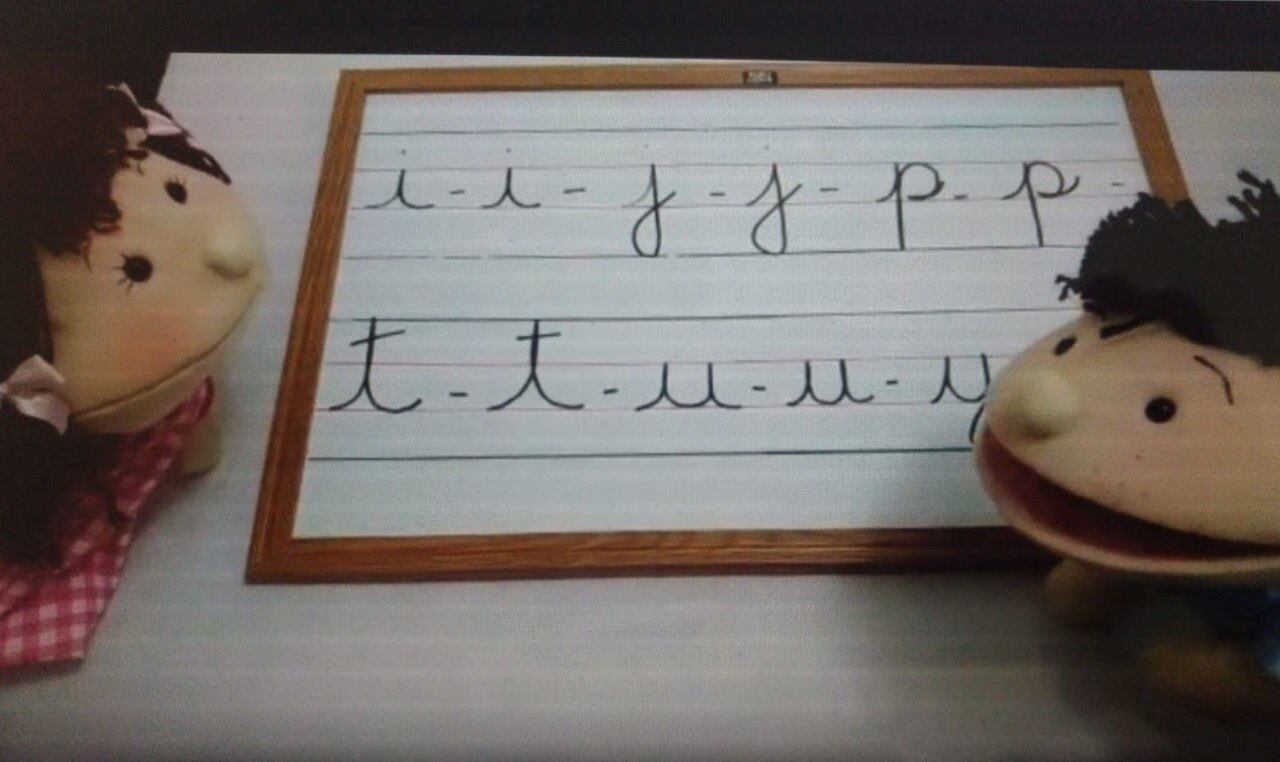 i - i - j - j - p - p -
t - t - u - u - y